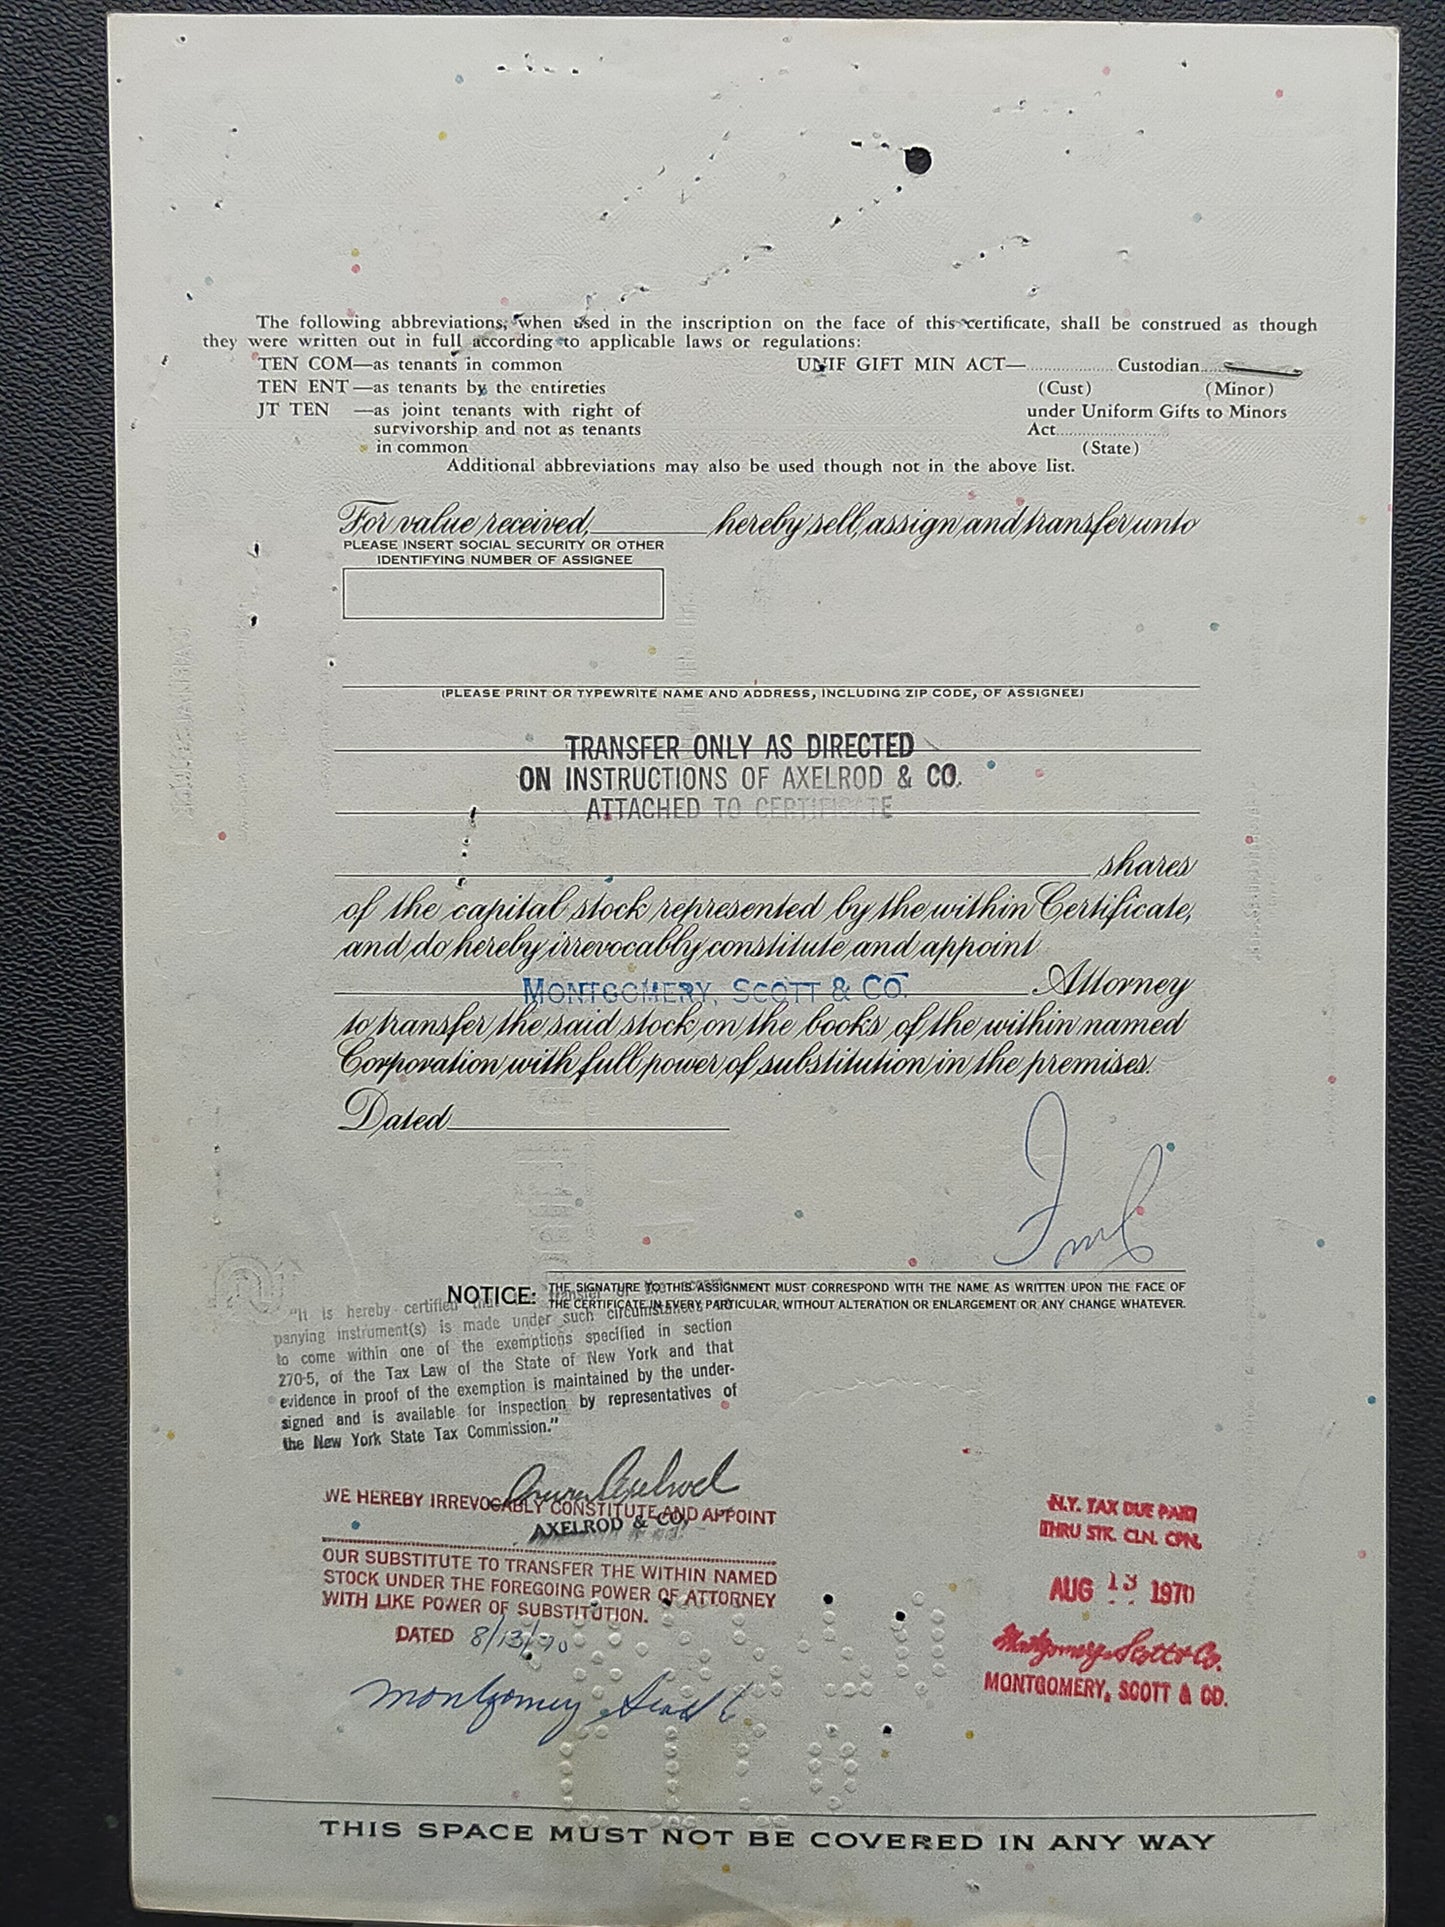 The following abbreviations, when used in the inscription on the face of this certificate, shall be construed as though
they were written out in full according to applicable laws or regulations:
TEN COM—as tenants in common
TEN ENT—as tenants by the entireties
JT TEN —as joint tenants with right of
survivorship and not as tenants
in common
UNIF GIFT MIN ACT—.................... Custodian....................
(Cust) (Minor)
under Uniform Gifts to Minors
Act........................
(State)
Additional abbreviations may also be used though not in the above list.
For value received,__________ hereby sell, assign and transfer unto
PLEASE INSERT SOCIAL SECURITY OR OTHER
IDENTIFYING NUMBER OF ASSIGNEE
(PLEASE PRINT OR TYPEWRITE NAME AND ADDRESS, INCLUDING ZIP CODE, OF ASSIGNEE)
TRANSFER ONLY AS DIRECTED
ON INSTRUCTIONS OF AXELROD & CO.
ATTACHED TO CERTIFICATE
shares
of the capital stock represented by the within Certificate,
and do hereby irrevocably constitute and appoint
MONTGOMERY, SCOTT & CO. Attorney
to transfer the said stock on the books of the within named
Corporation with full power of substitution in the premises.
Dated
NOTICE: THE SIGNATURE TO THIS ASSIGNMENT MUST CORRESPOND WITH THE NAME AS WRITTEN UPON THE FACE OF
THE CERTIFICATE IN EVERY PARTICULAR, WITHOUT ALTERATION OR ENLARGEMENT OR ANY CHANGE WHATEVER.
"It is hereby certified that the transfer of the accom-
panying instrument(s) is made under such circumstances as
to come within one of the exemptions specified in section
270-5, of the Tax Law of the State of New York and that
evidence in proof of the exemption is maintained by the under-
signed and is available for inspection by representatives of
the New York State Tax Commission."
Axelrod
WE HEREBY IRREVOCABLY CONSTITUTE AND APPOINT
AXELROD & CO.
OUR SUBSTITUTE TO TRANSFER THE WITHIN NAMED
STOCK UNDER THE FOREGOING POWER OF ATTORNEY
WITH LIKE POWER OF SUBSTITUTION.
DATED 8/13/70
Montgomery Scott
N.Y. TAX DUE PAID
THRU STK. CLN. CPN.
AUG 13 1970
Montgomery, Scott & Co.
MONTGOMERY, SCOTT & CO.
THIS SPACE MUST NOT BE COVERED IN ANY WAY